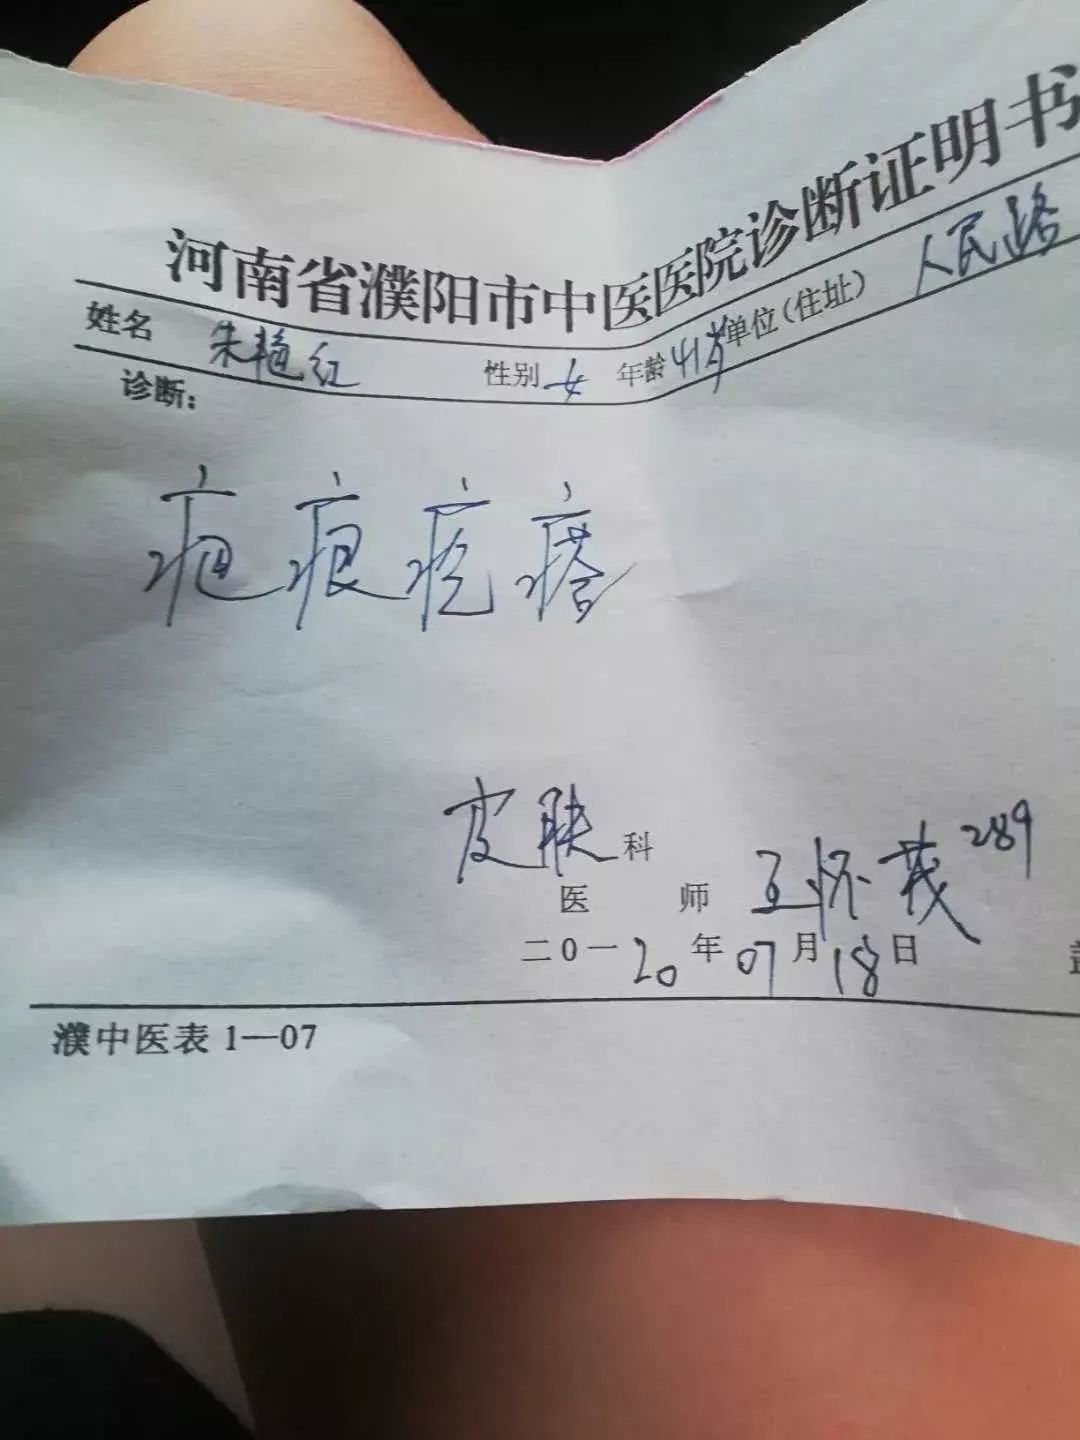 河南省濮阳市中医医院诊断证明书
姓名 朱艳红 性别 女 年龄 41岁 单位(住址) 人民路
诊断:
疤痕疙瘩
皮肤科
医 师 王怀茂 289
二〇一20年07月18日
濮中医表1—07